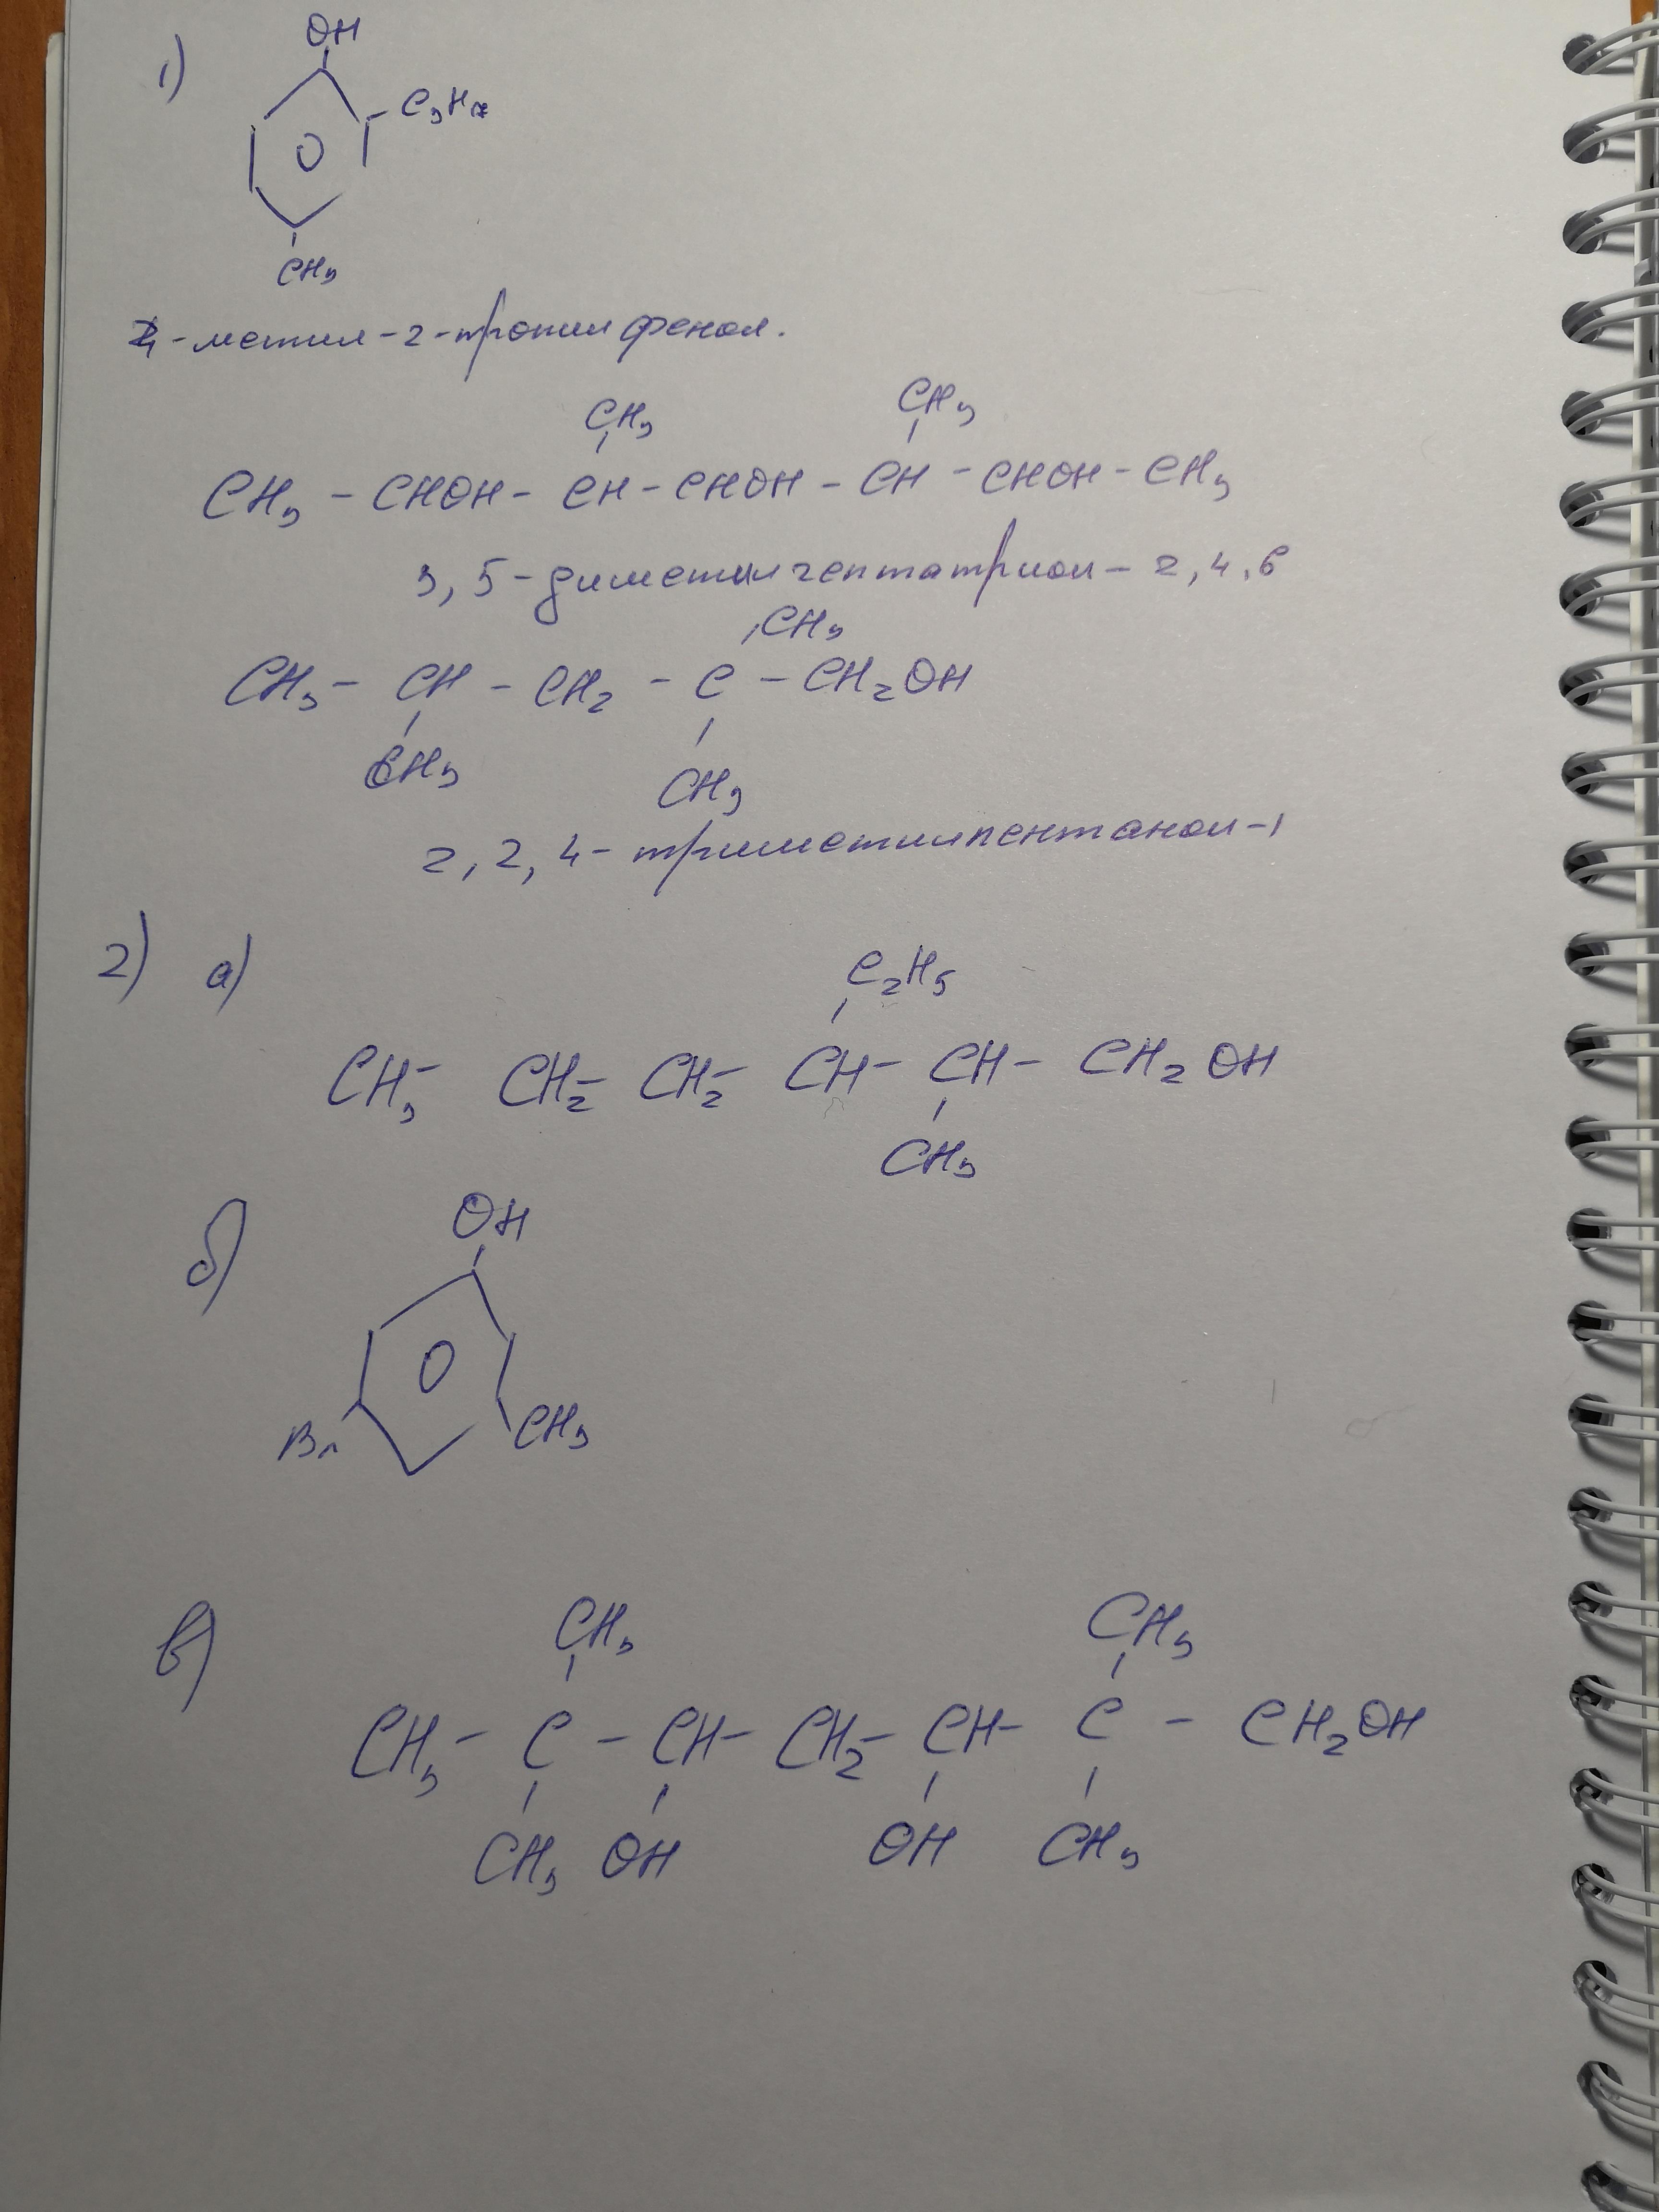 1)
OH
C3H7
CH3
4-метил-2-пропилфенол.
CH3 CH3
CH3 - CHOH - CH - CHOH - CH - CHOH - CH3
3,5-диметилгептатриол-2,4,6
CH3
CH3 - CH - CH2 - C - CH2OH
CH3 CH3
2,2,4-триметилпентанол-1
2) а)
C2H5
CH3- CH2- CH2- CH- CH- CH2OH
CH3
б)
OH
Br CH3
в)
CH3 CH3
CH3- C - CH- CH2- CH- C - CH2OH
CH3 OH OH CH3